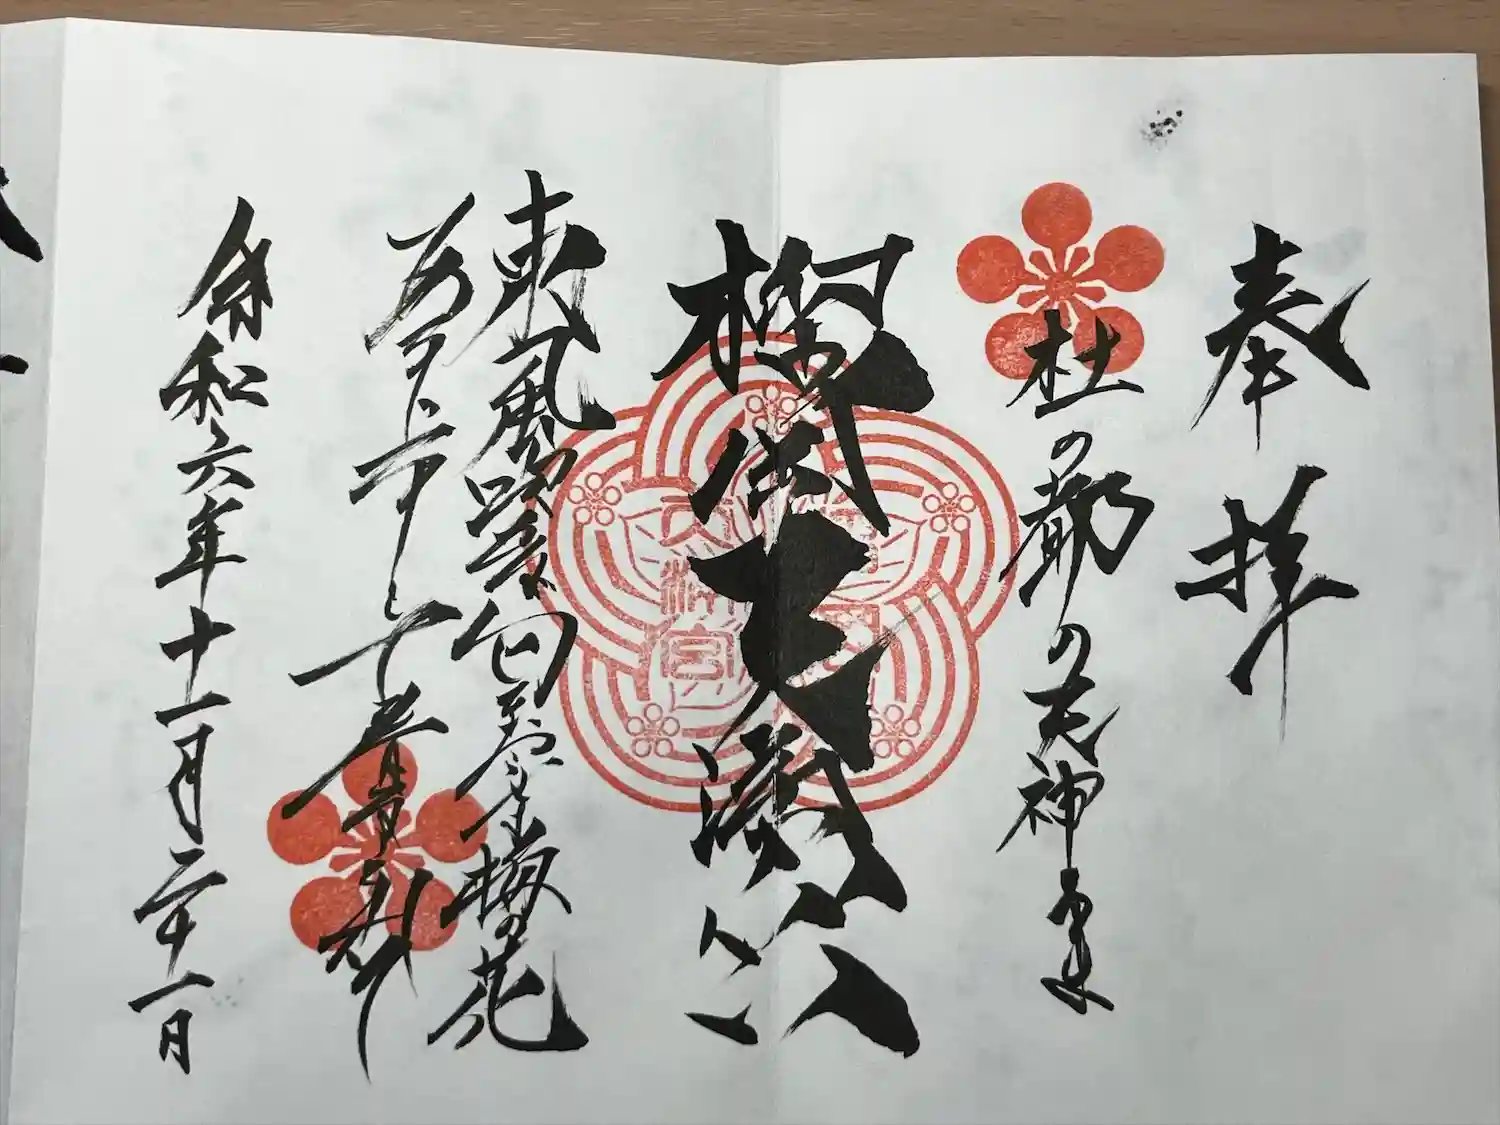 奉拝
杜の都の天神さま
榴岡天満宮
東風吹かば匂ひおこせよ梅の花
あるじなしとて春
令和六年十一月二十一日